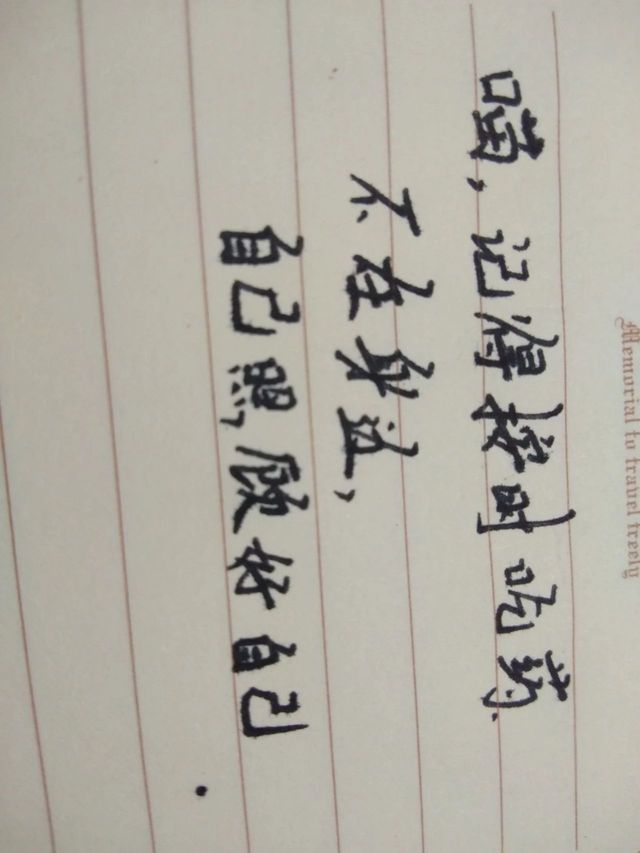 Memorial to travel freely
喵,记得按时吃药.
不在身边,
自己照顾好自己.